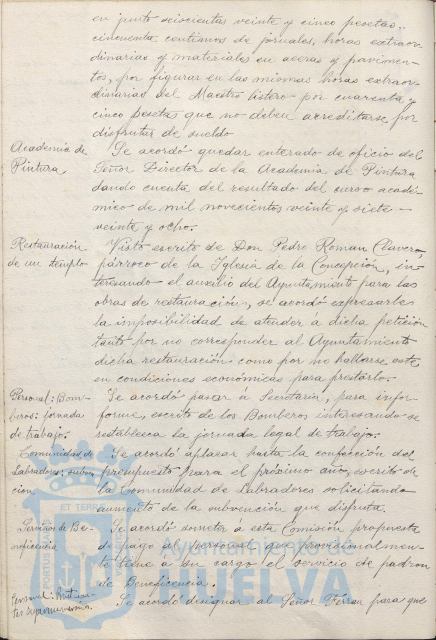 en junto seiscientas veinte y cinco pesetas
cincuenta centimos de jornales, horas extraor-
dinarias y materiales en aceras y pavimen-
tos, por figurar en las mismas horas extraor-
dinarias del Maestro listero por cuarenta y
cinco pesetas que no deben acreditarse por
disfrutar de sueldo
Academia de
Pintura.
Se acordó quedar enterado de oficio del
Señor Director de la Academia de Pintura
dando cuenta del resultado del curso acadé-
mico de mil novecientos veinte y siete -
veinte y ocho.
Restauración
de un templo
Visto escrito de Don Pedro Roman Clavero,
párroco de la Iglesia de la Concepción, in-
teresando el auxilio del Ayuntamiento para las
obras de restauración, se acordó expresarles
la imposibilidad de atender á dicha petición
tanto por no corresponder al Ayuntamiento
dicha restauración como por no hallarse este
en condiciones económicas para prestarlo.
Personal: Bom-
beros: jornada
de trabajo.
Se acordó pasar a Secretaria, para infor-
forme, escrito de los Bomberos interesando se
establezca la jornada legal de trabajo.
Comunidad de
Labradores: subven
cion
Se acordó aplazar hasta la confección del
presupuesto para el próximo año, escrito de
la Comunidad de Labradores solicitando
aumento de la subvención que disfruta.
Servicio de Be-
neficencia
Se acordó someter á esta Comisión propuesta
de pago al personal que provisionalmen-
te tiene a su cargo el servicio de padron
de Beneficencia.
Personal:
Se acordó designar al Señor Ferran para que
Ayuntamiento de
HUELVA
ET TERRÆ